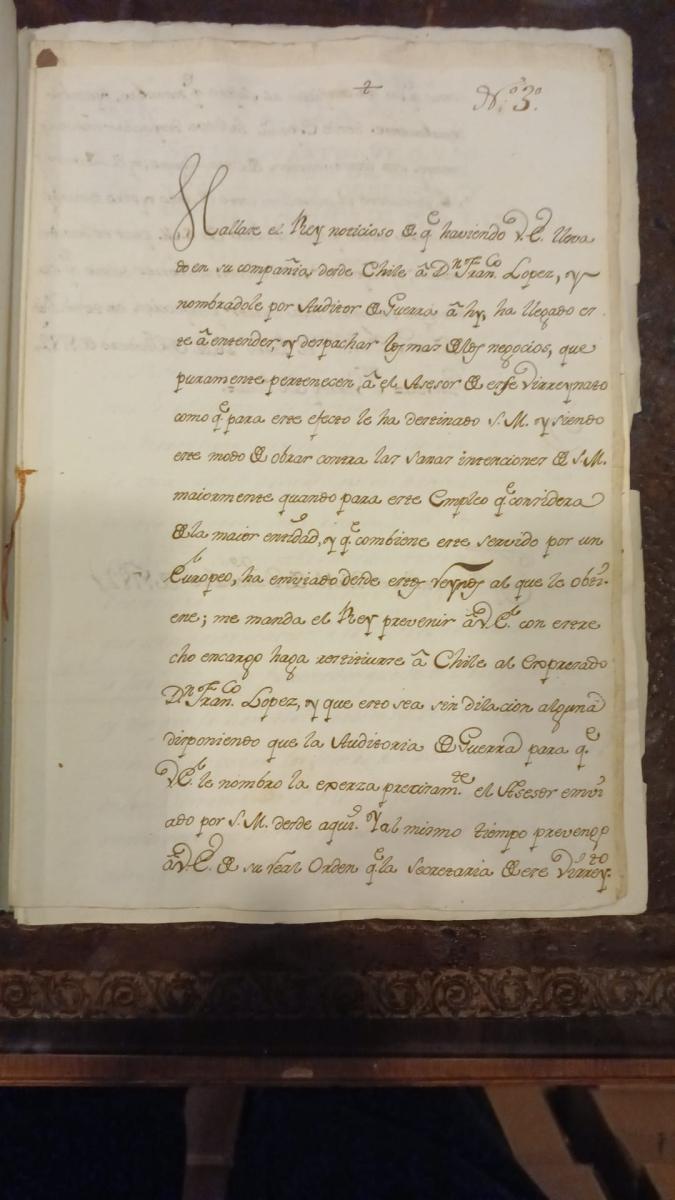 +
N.º 3.º
Hallase el Rey noticioso de q.e haviendo V.E. lleva
do en su compañia, desde Chile â D.n Fran.co Lopez, y
nombradole por Auditor de Guerra â hy, ha llegado es
te â entender, y despachar los mas de los negocios, que
puramente pertenecen, â el Asesor de esse Virreynato
como q.e para este efecto le ha destinado S.M. y siendo
este modo de obrar contra las sanas intenciones de S.M.
maiormente quando para este Empleo q.e considera
de la maior entidad, y q.e combiene este servido por un
Europeo, ha enviado desde estos reynos al que le obti-
ene; me manda el Rey prevenir â V.E. con estre
cho encargo haga restituirse â Chile al expresado
D.n Fran.co Lopez, y que esto sea sin dilacion alguna
disponiendo que la Auditoria de Guerra para q.e
V.E. le nombro la exerza precisam.te el Asesor embi
ado por S.M. desde aqui. Y al mismo tiempo prevengo
â V.E. de su real Orden q.e la secretaria de ese Virrey.to